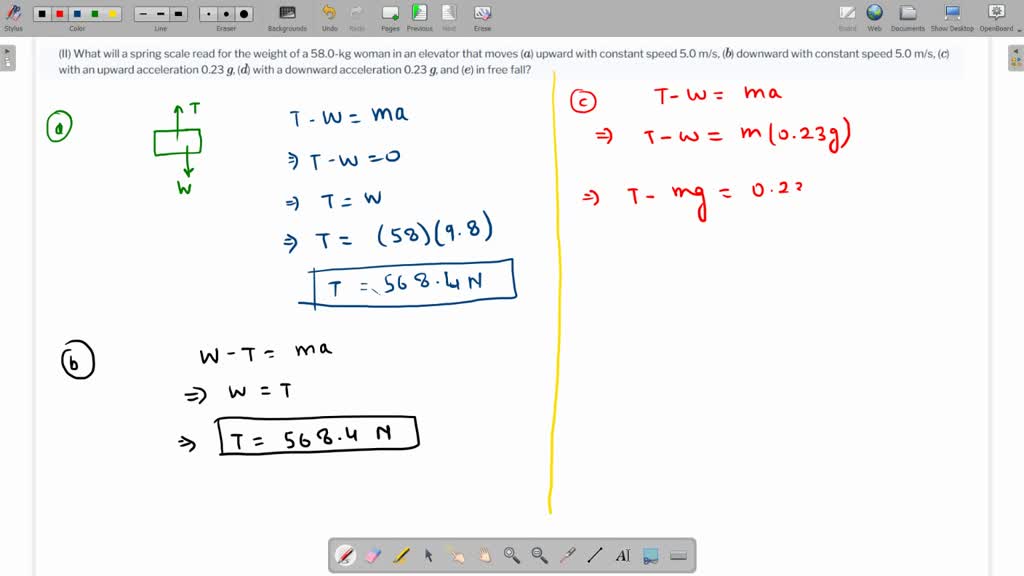 Stylus
Color
Line
Eraser
Backgrounds
Undo
Redo
Pages
Previous
Next
Erase
Board
Web
Documents
Show Desktop
OpenBoard
(II) What will a spring scale read for the weight of a 58.0-kg woman in an elevator that moves (a) upward with constant speed 5.0 m/s, (b) downward with constant speed 5.0 m/s, (c)
with an upward acceleration 0.23 g, (d) with a downward acceleration 0.23 g, and (e) in free fall?
a
T
W
T - W = ma
⇒ T - W = 0
⇒ T = W
⇒ T = (58)(9.8)
T = 568.4 N
b
W - T = ma
⇒ W = T
⇒ T = 568.4 N
c
T - W = ma
⇒ T - W = m(0.23g)
⇒ T - mg = 0.23
AI